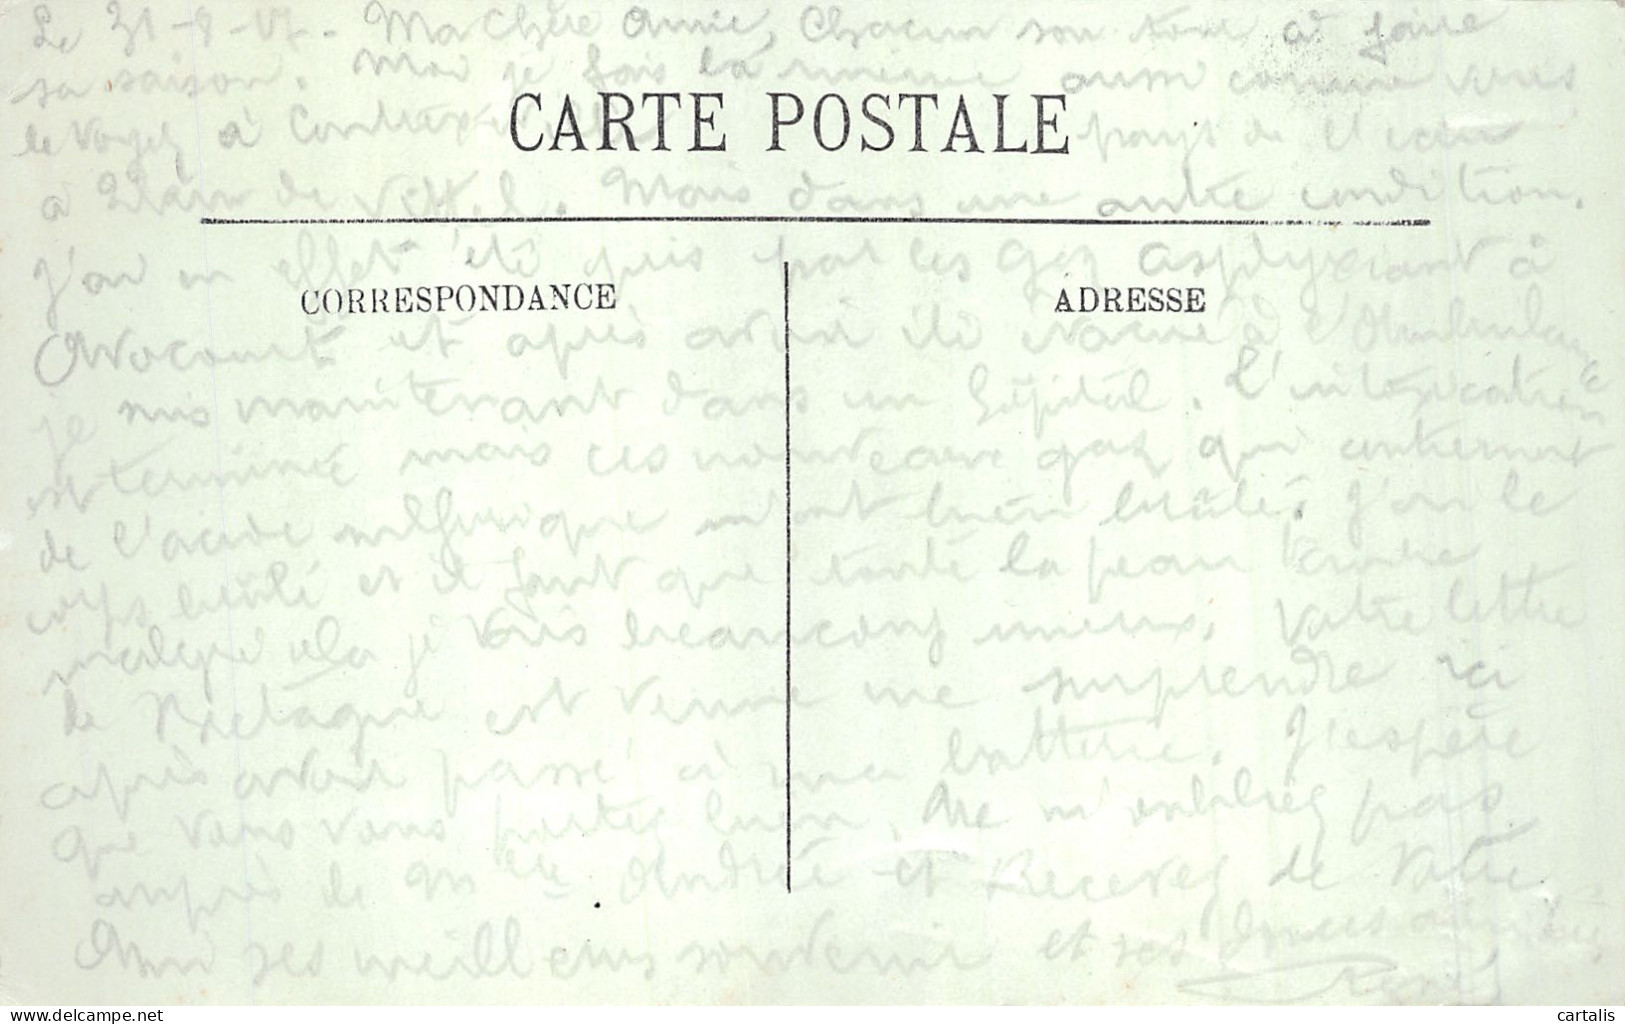 Le 31-8-17. Ma Chère Amie, Chacun son tour à faire
sa saison. Moi je fais la mienne aussi comme vous
le voyez à Contrexéville pays de l'eau
CARTE POSTALE
à de Vittel. Mais dans une autre condition.
J'ai en effet été pris par les gaz asphyxiant à
CORRESPONDANCE
ADRESSE
Avocourt et après avoir été évacué à l'Ambulance
je suis maintenant dans un hôpital. L'intoxication
est terminée mais ces nouveaux gaz qui contiennent
de l'acide sulfurique m'ont bien brûlé. J'ai le
corps brûlé et il faut que toute la peau tombe
malgré cela je vais beaucoup mieux. Votre lettre
de Bretagne est venue me surprendre ici
après avoir passé à ma batterie. J'espère
que vous vous portez bien. Ne m'oubliez pas
auprès de Mlle Andrée et Recevez de Votre
Ami ses meilleurs souvenir et ses amitiés
cartalis